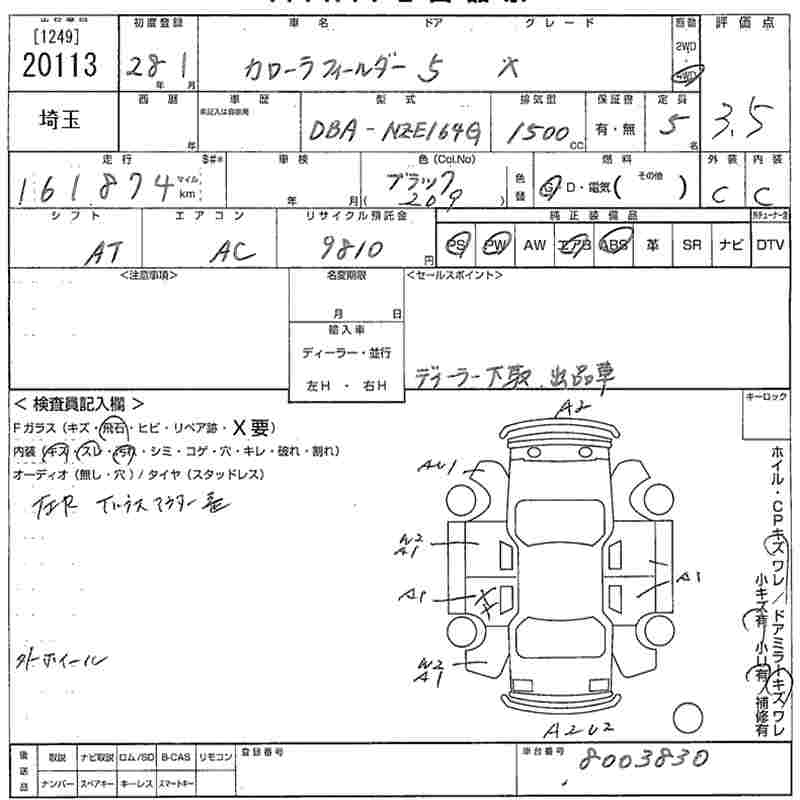 [1249]
初度登録 車名 ドア グレード 駆動 評価点
20113 28年 1月 カローラフィールダー 5 X 2WD 4WD 3.5
埼玉 西暦 年 車歴 型式 排気量 保証書 定員
未記入は自家用
DBA-NZE164G 1500 CC 有・無 5 名
走行 車検 色(Col.No) 燃料 外装 内装
161,874 マイル km 年 月 ブラック 209 色替 G D・電気( その他 ) C C
シフト エアコン リサイクル預託金 純正装備品
AT AC 9810円 PS PW AW エアB ABS 革 SR ナビ DTV
<注意事項> 名変期限 <セールスポイント>
月 日
輸入車
ディーラー・並行
左H ・ 右H
ディーラー下取 出品車
< 検査員記入欄 >
キーロック
Fガラス(キズ・飛石・ヒビ・リペア跡・X要)
内装(キズ・スレ・汚れ・シミ・コゲ・穴・キレ・破れ・割れ)
オーディオ(無し・穴)/タイヤ(スタッドレス)
A2
AU1
W2
A1
A1
A1
W2
A1
A2U2
ホイル・CPキズ ワレ/ドアミラーキズ ワレ
小キズ有 小U有 補修有
外ホイール
後送品 取説 ナビ取説 ロム/SD B-CAS リモコン 登録番号 車台番号
8003830
ナンバー スペアキー キーレス スマートキー